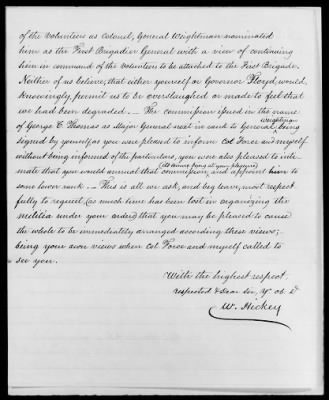 of the Volunteers as Colonel, General Weightman nominated
him as the First Brigadier General with a view of continuing
him in command of the Volunteers to be attached to the First Brigade.
Neither of us believe, that either yourself or Governor Floyd, would,
knowingly, permit us to be overslaughed or made to feel that
we had been degraded. — The commission issued in the name
of George C. Thomas as Major General next in said to General Weightman, being
signed by yourself, as you were pleased to inform Col Force and myself
without being informed of the particulars, you were also pleased to inti-
mate that you would annul that commission, and appoint him to
some lower rank. — This is all we ask, and beg leave, most respect
fully to request, (as much time has been lost in organizing the
militia under your orders) that you may be pleased to cause
the whole to be immediately arranged according these views;
being your own views when Col. Force and myself called to
see you.
With the highest respect.
respected & Dear Sir, Yr ob. St
W. Hickey